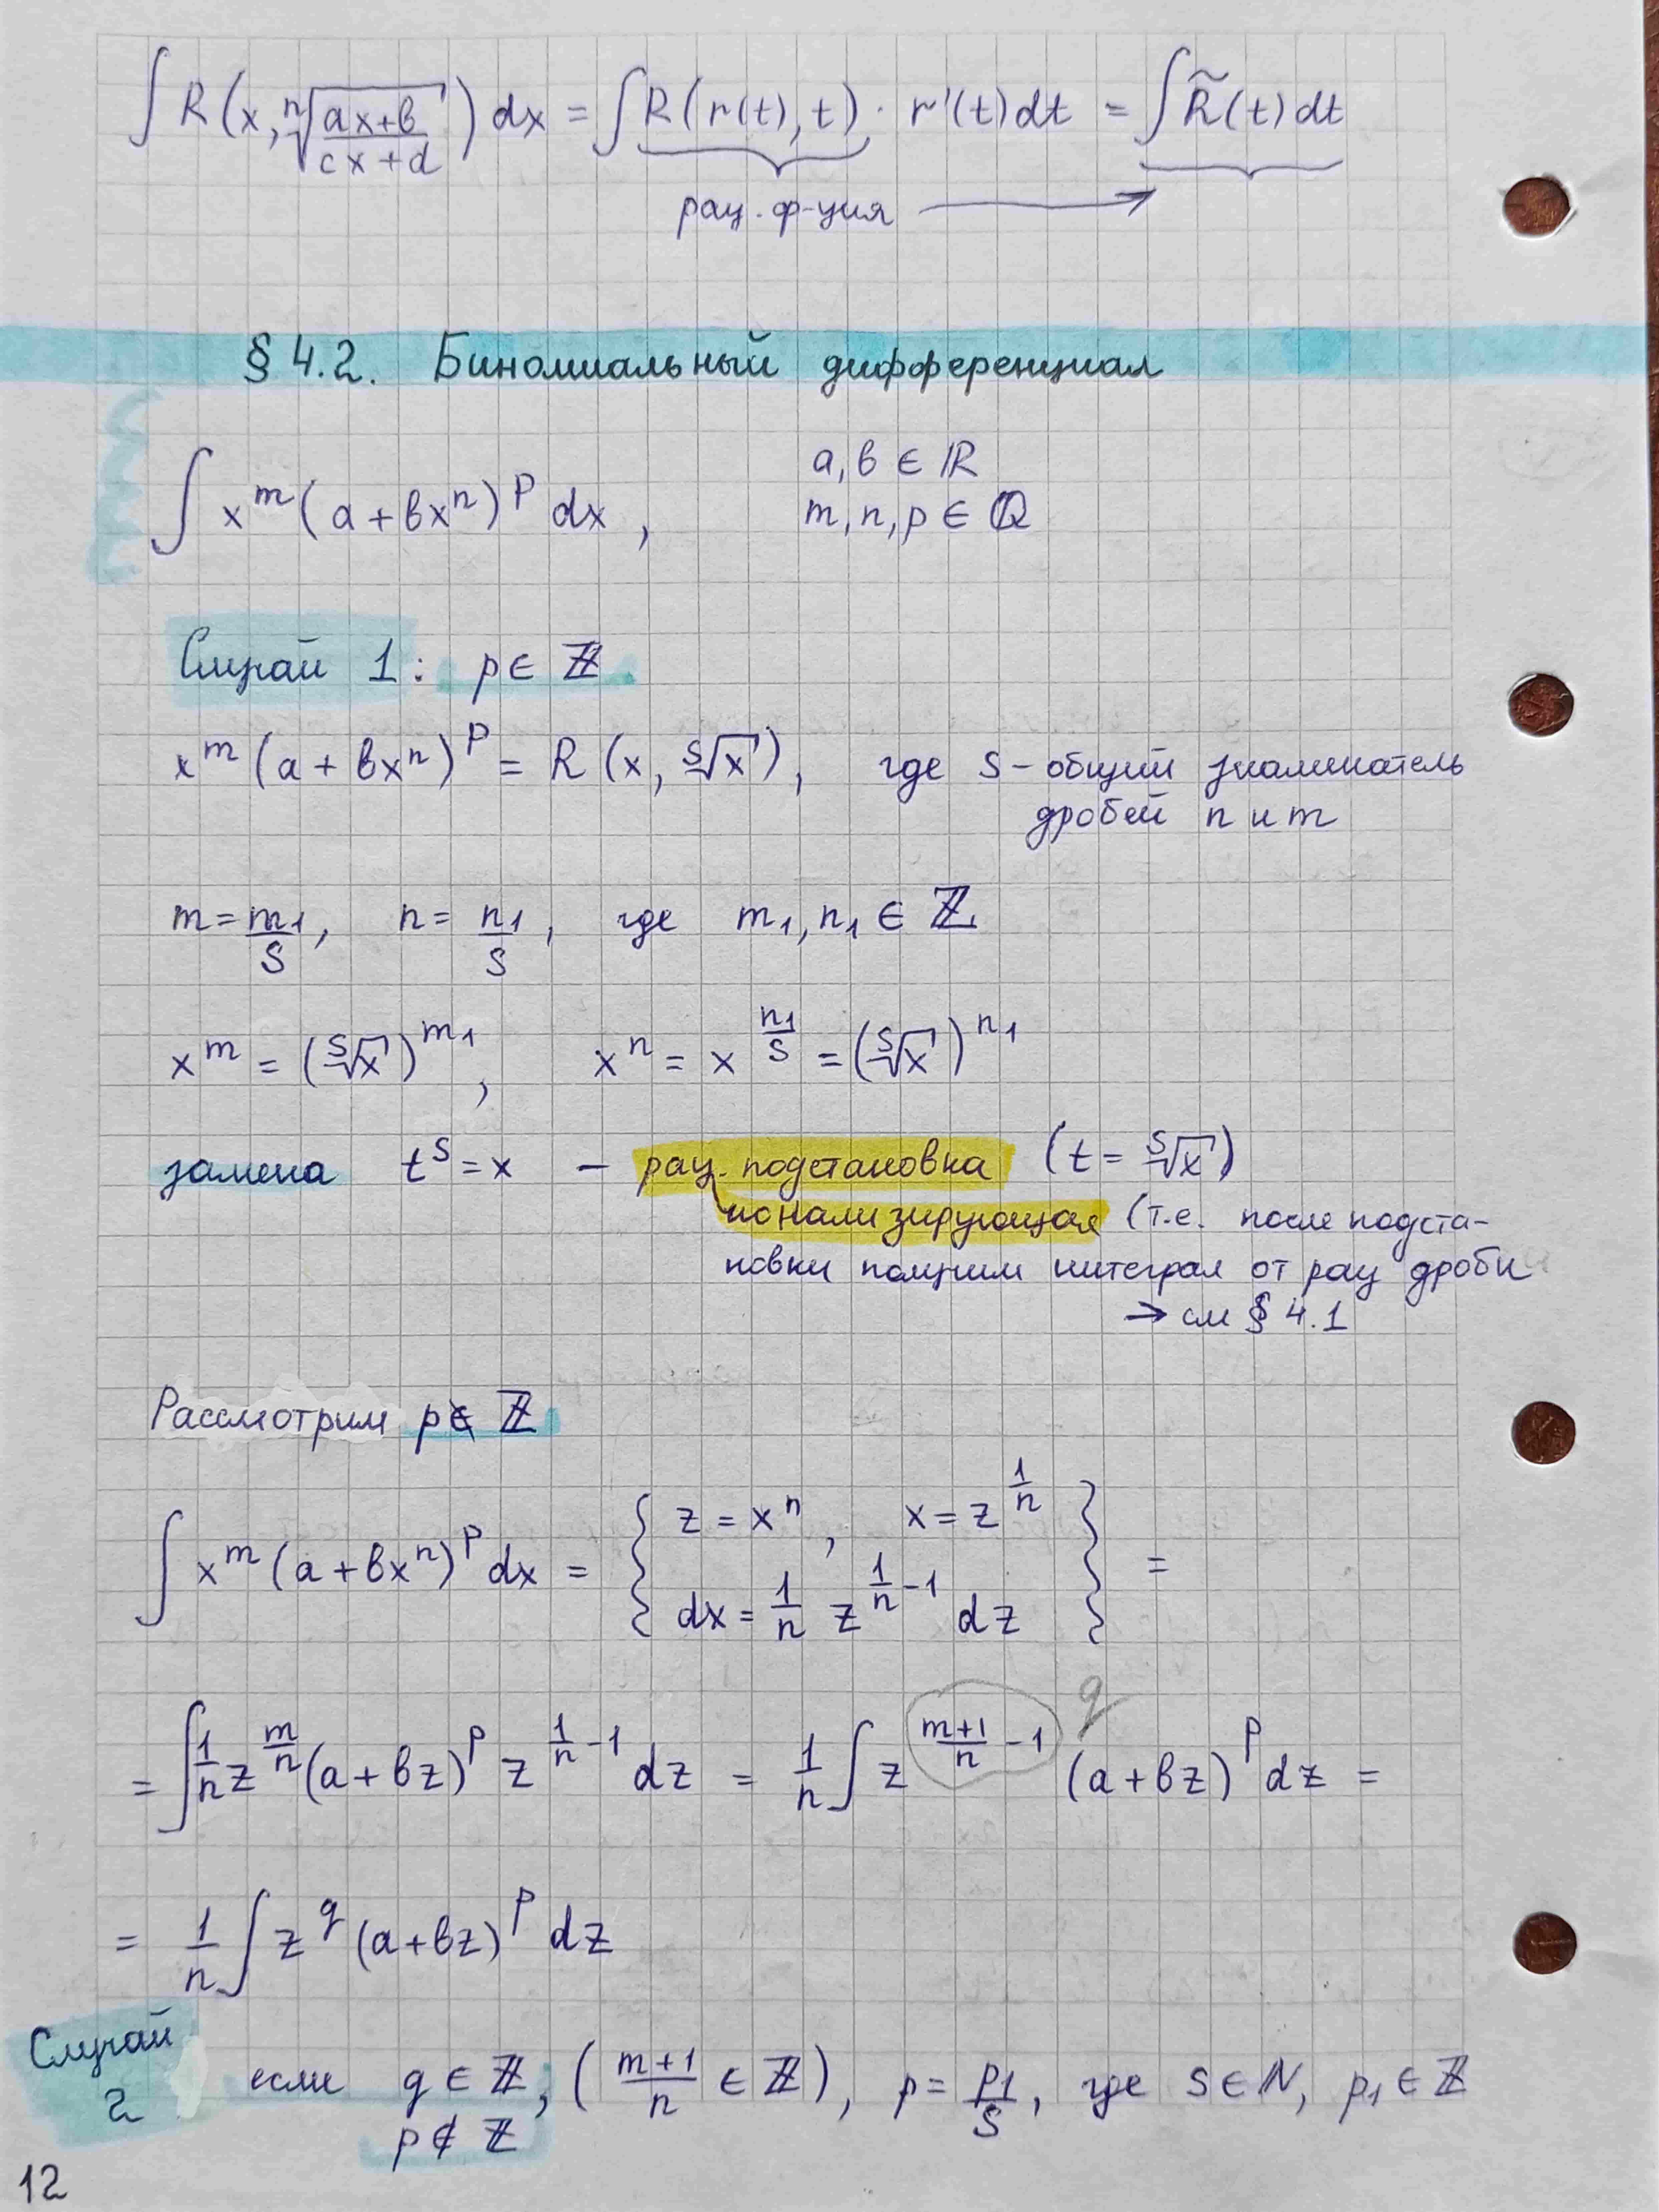 ∫ R(x, ⁿ√((ax+b)/(cx+d))) dx = ∫ R(r(t), t) · r'(t)dt = ∫ R̃(t)dt
рац. ф-ция →
§ 4.2. Биномиальный дифференциал
∫ x^m (a + bx^n)^p dx, a, b ∈ ℝ
m, n, p ∈ ℚ
Случай 1: p ∈ ℤ
x^m (a + bx^n)^p = R(x, ˢ√x), где s - общий знаменатель
дробей n и m
m = m₁/s, n = n₁/s, где m₁, n₁ ∈ ℤ
x^m = (ˢ√x)^(m₁), x^n = x^(n₁/s) = (ˢ√x)^(n₁)
замена t^s = x – рац. подстановка (t = ˢ√x)
ионализирующая (т.е. после подста-
новки получим интеграл от рац дроби
→ см § 4.1
Рассмотрим p ∉ ℤ
∫ x^m (a + bx^n)^p dx = { z = x^n, x = z^(1/n)
dx = 1/n z^(1/n - 1) dz } =
= ∫ 1/n z^(m/n) (a + bz)^p z^(1/n - 1) dz = 1/n ∫ z^((m+1)/n - 1) q (a + bz)^p dz =
= 1/n ∫ z^q (a + bz)^p dz
Случай 2 если q ∈ ℤ, ((m+1)/n ∈ ℤ), p = p₁/s, где s ∈ N, p₁ ∈ ℤ
p ∉ ℤ
12